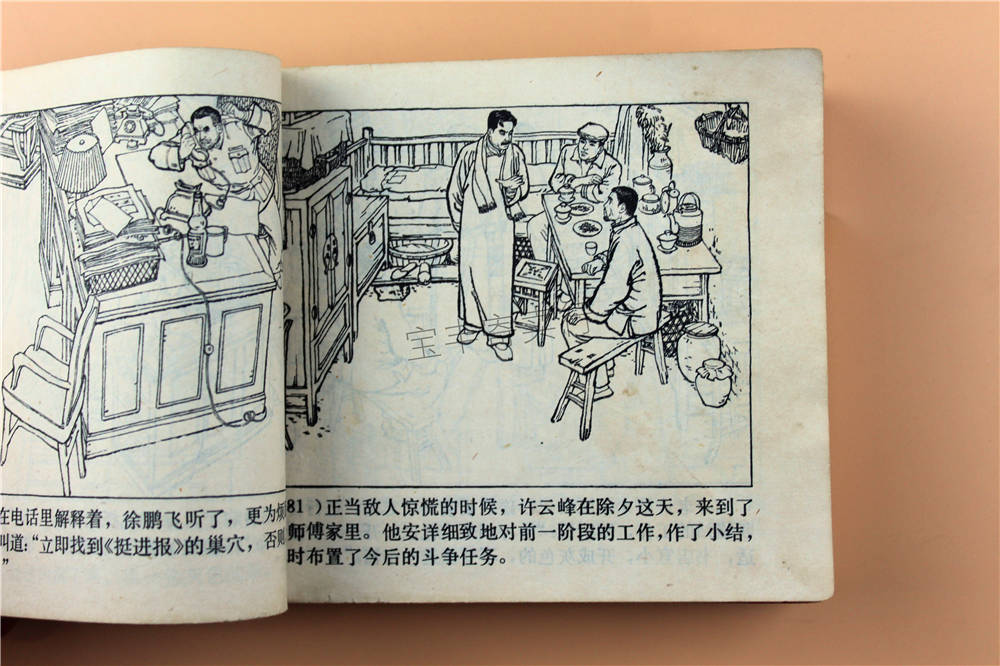 在电话里解释着，徐鹏飞听了，更为
叫道：“立即找到《挺进报》的巢穴，否
”
81）正当敌人惊慌的时候，许云峰在除夕这天，来到了
师傅家里。他安详细致地对前一阶段的工作，作了小结，
时布置了今后的斗争任务。